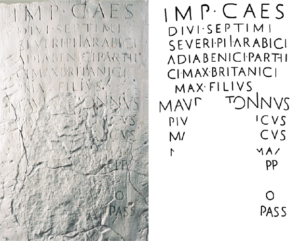 IMP·CAES
DIVI·SEPTIMI
SEVERI·PII·ARABICI
ADIABENICI·PARTHI
CI·MAX·BRITANICI
MAX·FILIVS
TONNVS
ICVS
CVS
PP
O
PASS
IMP·CAES
DIVI·SEPTIMI
SEVERI·PII ARABICI
ADIABENICI·PARTHI
CI·MAX·BRITANICI
MAX·FILIVS
MAVR TONNVS
PIV ICVS
M CVS
MAX
PP
O
PASS